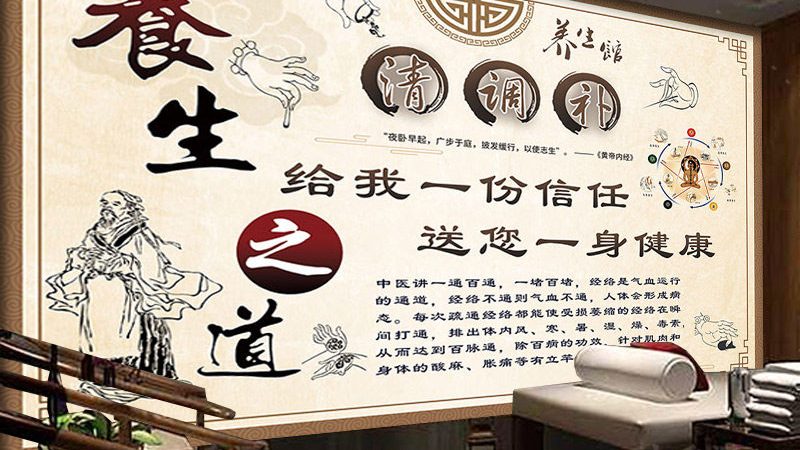 養生之道
养生館
清调补
"夜卧早起，广步于庭，披发缓行，以使志生"。——《黄帝内经》
给我一份信任
送您一身健康
中医讲一通百通，一堵百堵，经络是气血运行
的通道，经络不通则气血不通，人体会形成病
态。每次疏通经络都能使受损萎缩的经络在瞬
间打通，排出体内风、寒、暑、湿、燥、毒素，
从而达到百脉通，除百病的功效。针对肌肉和
身体的酸麻、胀痛等有立竿